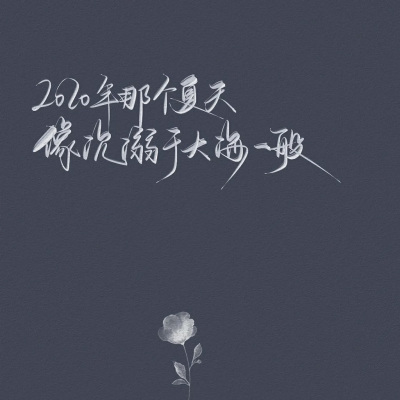 2020年那个夏天
像沉溺于大海一般